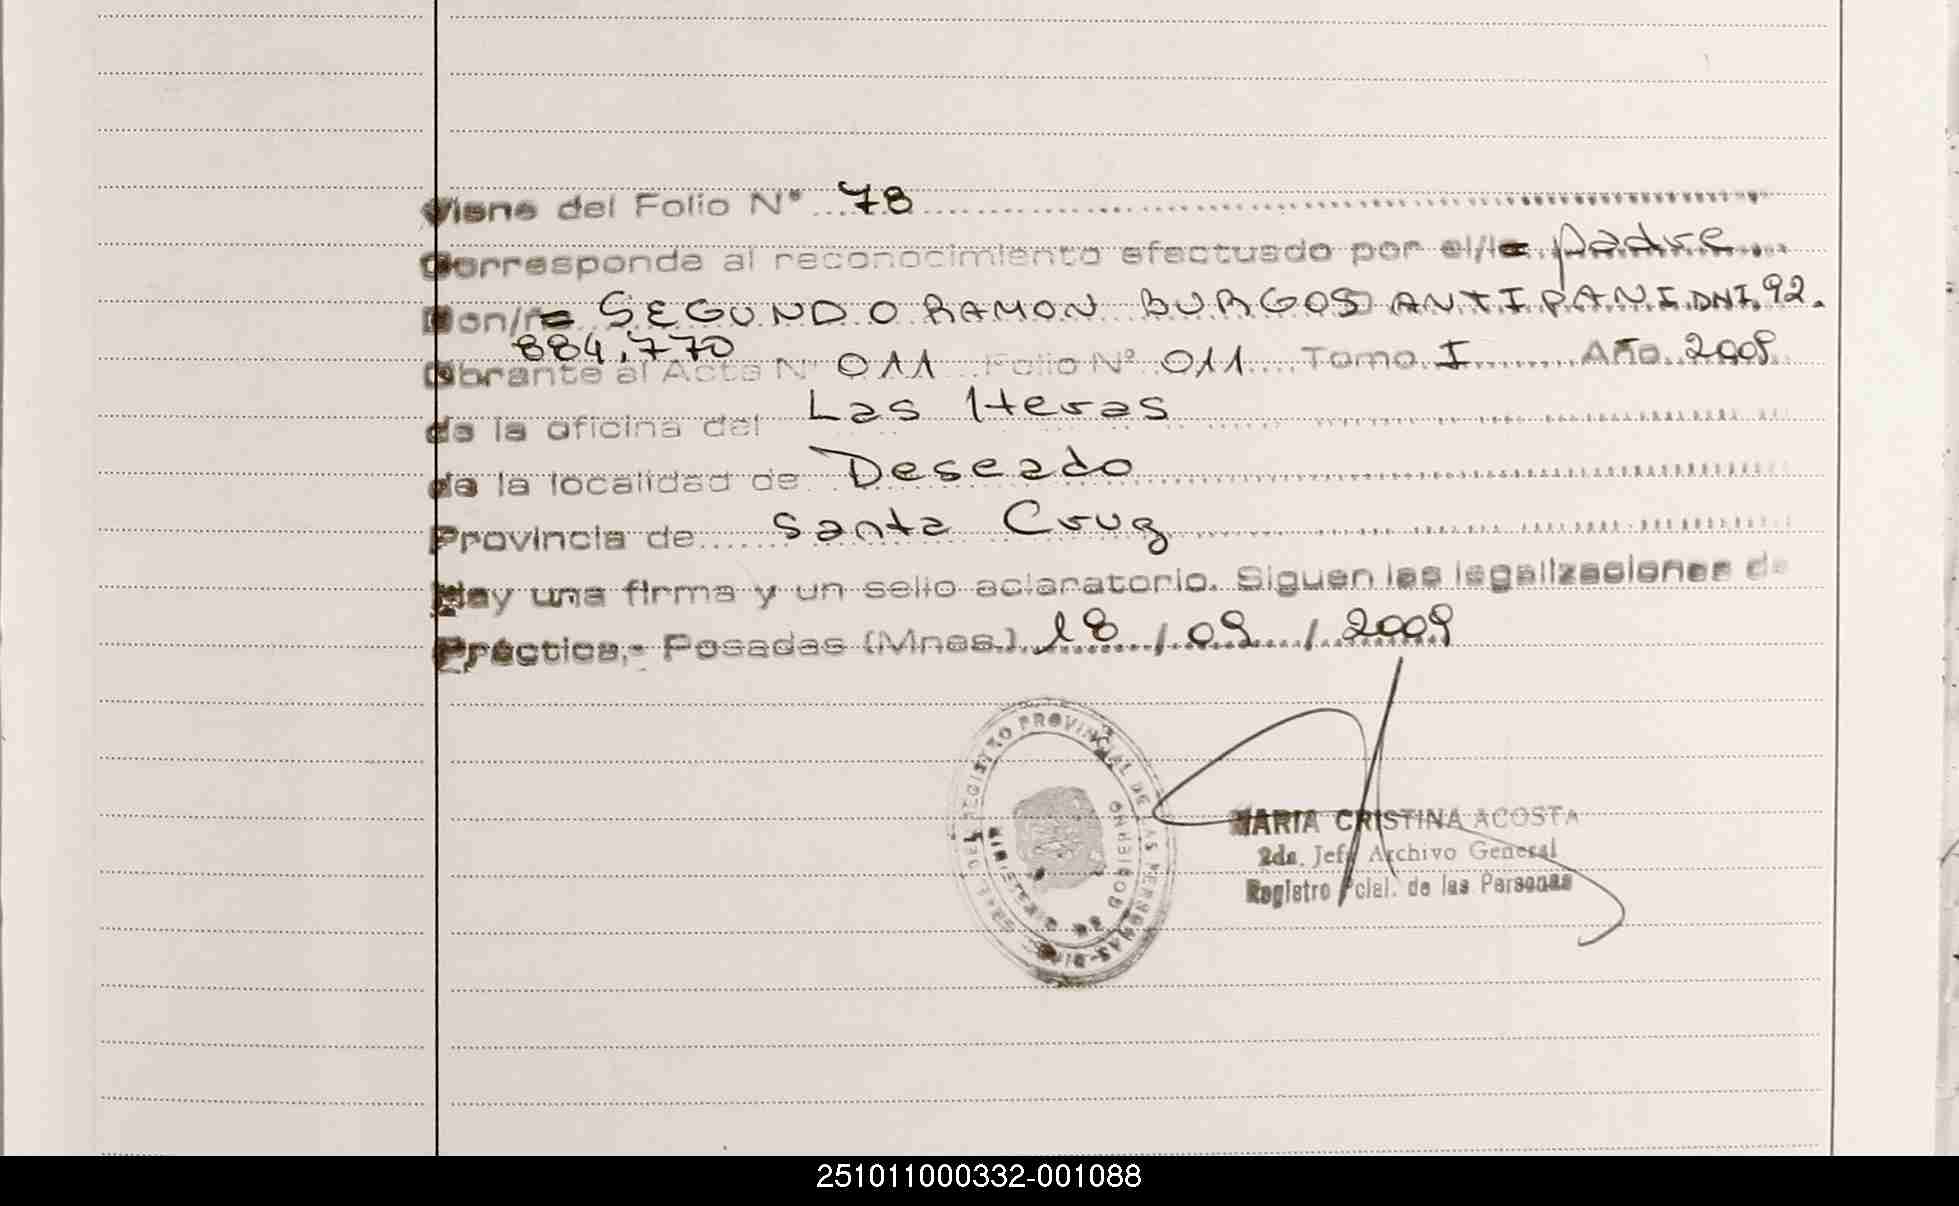 Viene del Folio N° 78
Corresponde al reconocimiento efectuado por el/la padre
Don/ña SEGUNDO RAMON BURGOS ANTIPANI DNI. 92.
884.770
Obrante al Acta N° 011 Folio N° 011 Tomo I Año 2009
de la oficina del Las Heras
de la localidad de Deseado
Provincia de Santa Cruz
Hay una firma y un sello aclaratorio. Siguen las legalizaciones de
Práctica.- Posadas (Mnes.) 18 / 09 / 2009
REGISTRO PROVINCIAL DE LAS PERSONAS
MINISTERIO DE GOBIERNO
MARIA CRISTINA ACOSTA
2da. Jefe Archivo General
Registro Pcial. de las Personas
251011000332-001088